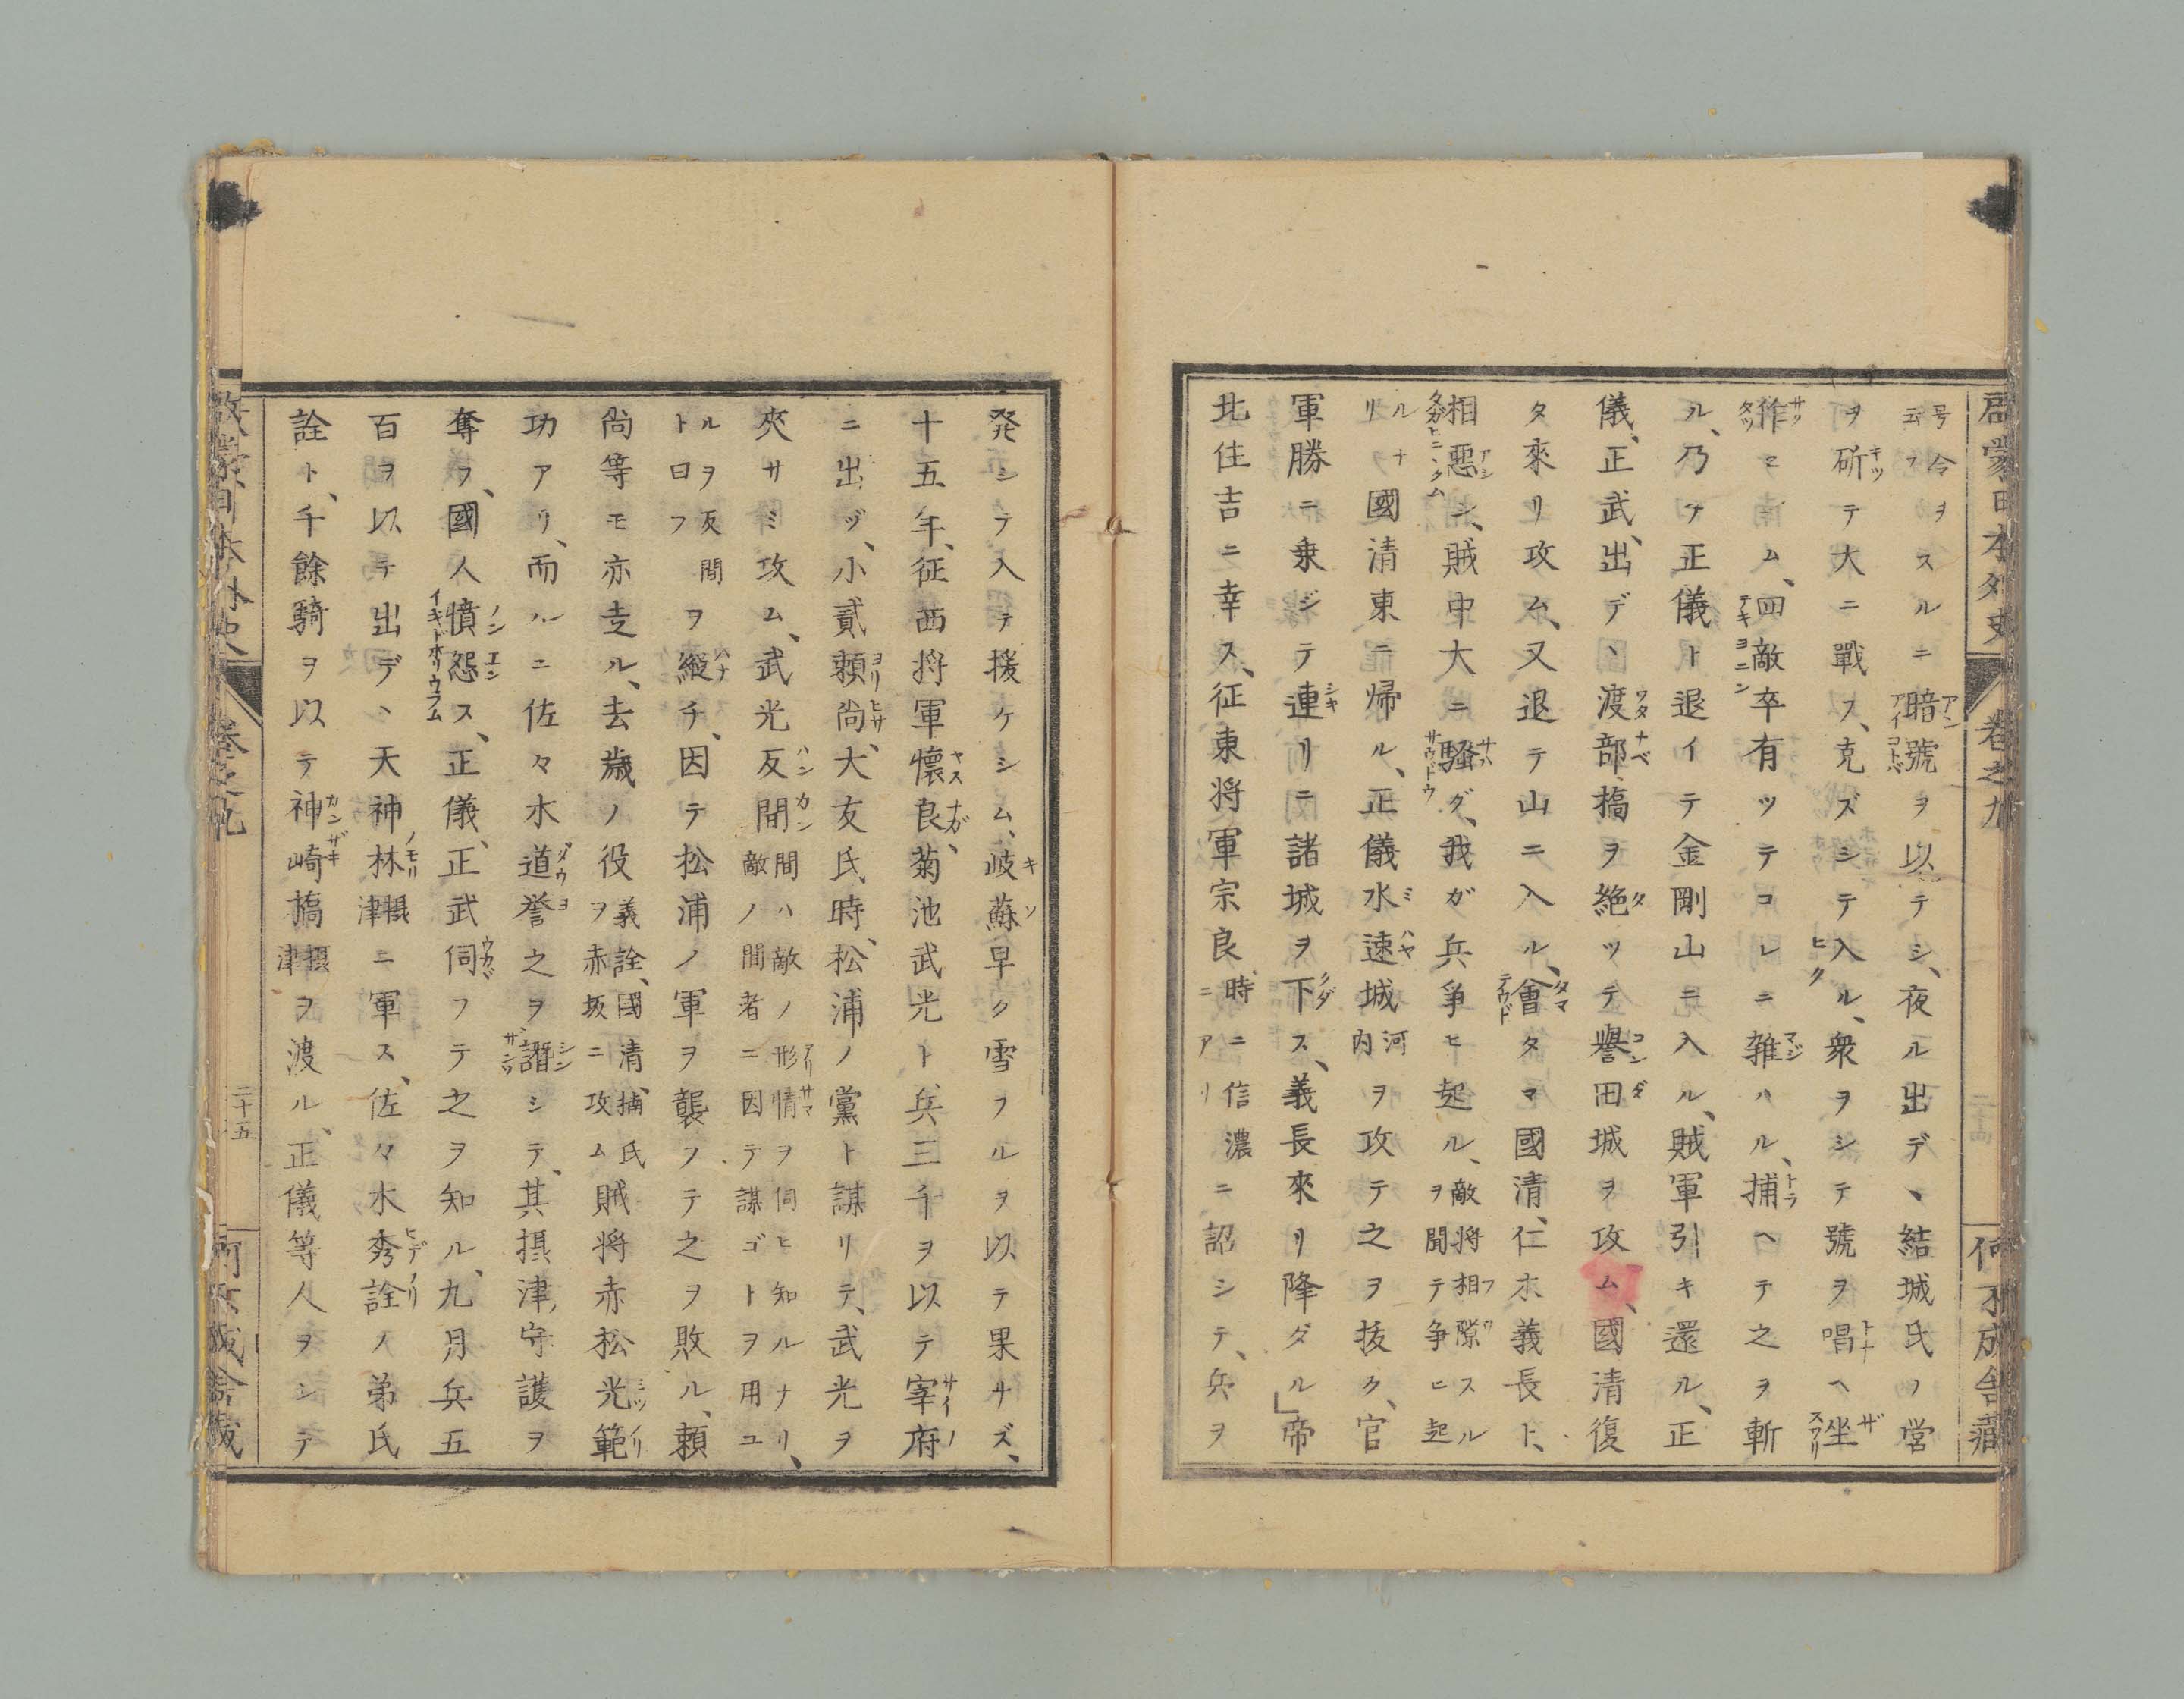 啓蒙日本外史 巻之九 二十四 何不成舎蔵
号令ヲ云フスルニ暗號ヲ以テシ、夜ル出デ、結城氏ノ営
ヲ斫テ大ニ戰フ、克ズシテ入ル、衆ヲシテ號ヲ唱ヘ坐
作セシム、四敵卒有ツテコレニ雑ハル、捕ヘテ之ヲ斬
ル、乃チ正儀ト退イテ金剛山ニ入ル、賊軍引キ還ル、正
儀、正武、出デ、渡部橋ヲ絶ツテ譽田城ヲ攻ム、國清復
タ來リ攻ム、又退テ山ニ入ル、會タマ國清、仁木義長ト、
相惡シ、賊中大ニ騒グ、我ガ兵爭ヒ起ル、敵将相隙スルヲ聞テ争ヒ起
ルナリ國清東ニ帰ル、正儀水速城河内ヲ攻テ之ヲ抜ク、官
軍勝ニ乗ジテ連リニ諸城ヲ下ス、義長來リ降ダル」帝
北住吉ニ幸ス、征東将軍宗良、時ニ信濃ニアリニ詔シテ、兵ヲ
発シテ入テ援ケシム、岐蘇早ク雪フルヲ以テ果サズ、
十五年、征西将軍懷良、菊池武光ト、兵三千ヲ以テ宰府
ニ出ヅ、小貳頼尚、大友氏時、松浦ノ黨ト謀リテ、武光ヲ
夾サミ攻ム、武光反間間ハ敵ノ形情ヲ伺ヒ知ルナリ、敵ノ間者ニ因テ謀ゴトヲ用ユ
ルヲ反間ト曰フヲ縱チ、因テ松浦ノ軍ヲ襲フテ之ヲ敗ル、頼
尚等モ亦走ル、去歳ノ役義詮、國清、楠氏ヲ赤坂ニ攻ム賊将赤松光範
功アリ、而ルニ佐々木道誉之ヲ譖シテ、其摂津ノ守護ヲ
奪フ、國人憤怨ス、正儀、正武伺フテ之ヲ知ル、九月兵五
百ヲ以テ出デ、天神林摂津ニ軍ス、佐々木秀詮ノ弟氏
詮ト、千餘騎ヲ以テ神崎橋摂津ヲ渡ル、正儀等人ヲシテ
啓蒙日本外史 巻之九 二十五 何不成舎蔵